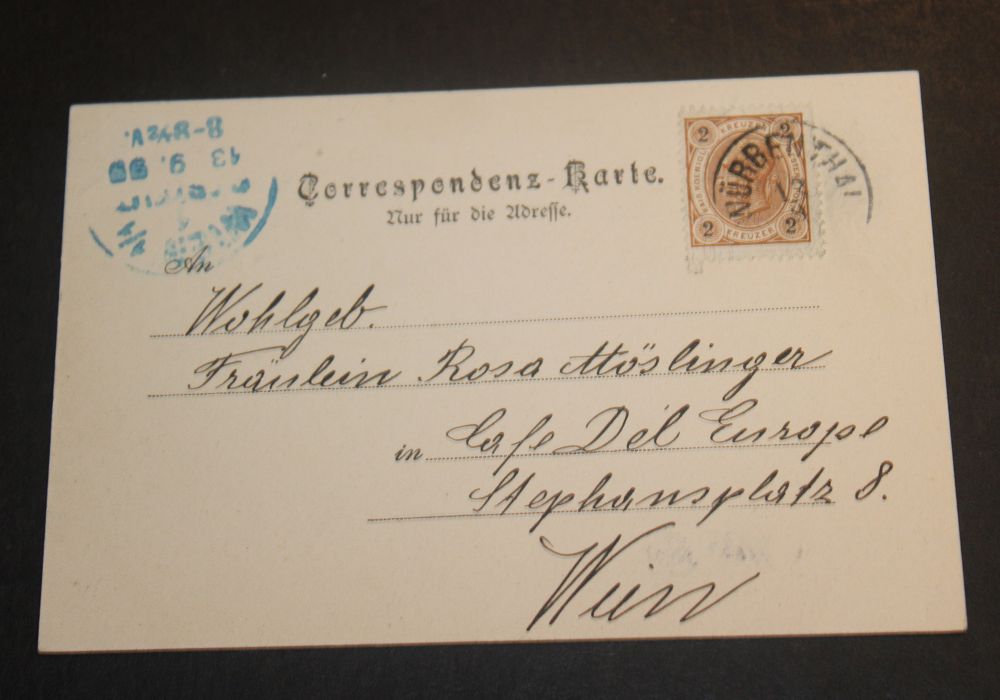 Correspondenz-Karte.
Nur für die Adresse.
An
Wohlgeb.
Fräulein Rosa Möslinger
in Cafe Del Europe
Stephansplatz 8.
Wien
2 KREUZER 2
2 KREUZER 2
8-9½V.
13 9. 98